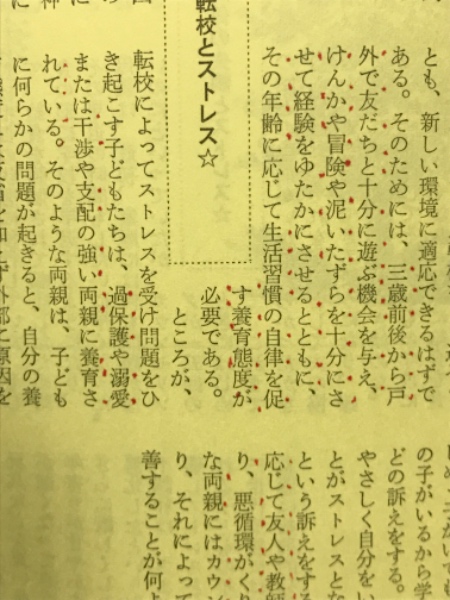 とも、新しい環境に適応できるはずで
ある。そのためには、三歳前後から戸
外で友だちと十分に遊ぶ機会を与え、
けんかや冒険や泥いたずらを十分にさ
せて経験をゆたかにさせるとともに、
その年齢に応じて生活習慣の自律を促
す養育態度が
必要である。
ところが、
転校とストレス☆
転校によってストレスを受け問題をひ
き起こす子どもたちは、過保護や溺愛
または干渉や支配の強い両親に養育さ
れている。そのような両親は、子ども
に何らかの問題が起きると、自分の養
外部に原因を
の子がいるから学
どの訴えをする。
やさしく自分をい
とがストレスとな
という訴えをする
応じて友人や教師
り、悪循環がくり
な両親にはカウン
り、それによって
善することが何よ